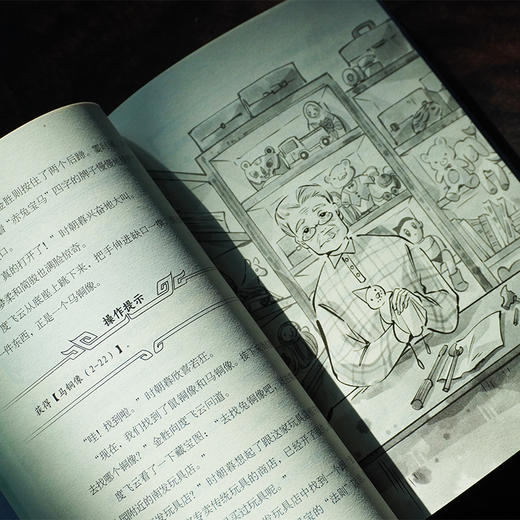 金胜则按住了两个后蹄。霎时
“赤兔宝马”四字的牌子慢慢
口。
真的打开了！”时朝暮兴奋地大叫。
柔和简骏也满脸惊奇。
度飞云从底座上跳下来，把手伸进缺口一
一件东西，正是一个马铜像。
操作提示
获得【马铜像（2-22）】。
“哇！找到啦。”时朝暮欣喜若狂。
“现在，我们找到了鼠铜像和马铜像。接下
去找哪个铜像？”金胜向度飞云问道。
度飞云看了一下藏宝图：“去找兔铜像吧，
园附近的南发玩具店。”
南发玩具店？”时朝暮想起了跟这家玩具
专卖传统玩具的商店，已经开
买过玩具呢。”
玩具店中找到一个
宝的“法